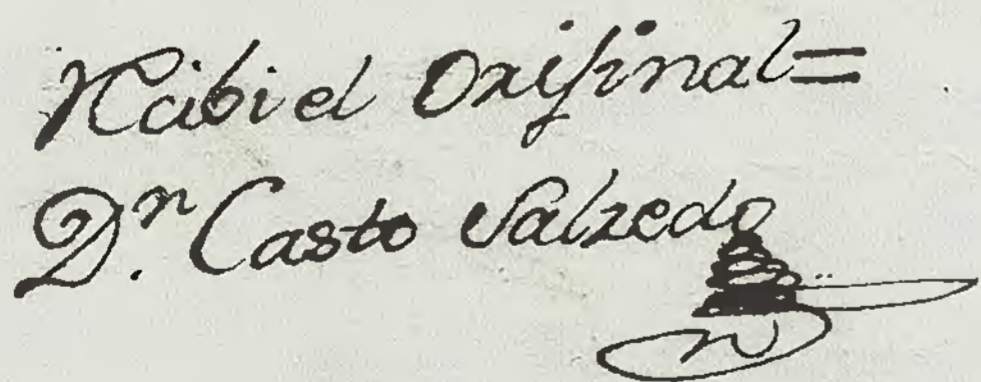 Rcibi el Original =
D.ⁿ Casto Salzedo